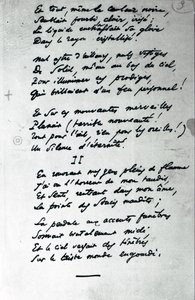 Et tout, même la couleur noire,
Semblait fourbi, clair, irisé;
Le liquide enchâssait sa gloire
Dans le rayon cristallisé.
Nul astre d'ailleurs, nuls vestiges
De soleil, même au bas du ciel,
Pour illuminer ces prodiges,
Qui brillaient d'un feu personnel!
Et sur ces mouvantes merveilles
Planait (terrible nouveauté!
Tout pour l'œil, rien pour les oreilles!)
Un silence d'éternité.
II
En rouvrant mes yeux pleins de flamme
J'ai vu l'horreur de mon taudis,
Et senti, rentrant dans mon âme,
La pointe des soucis maudits;
La pendule aux accents funèbres
Sonnait brutalement midi,
Et le ciel versait des ténèbres
Sur le triste monde engourdi.